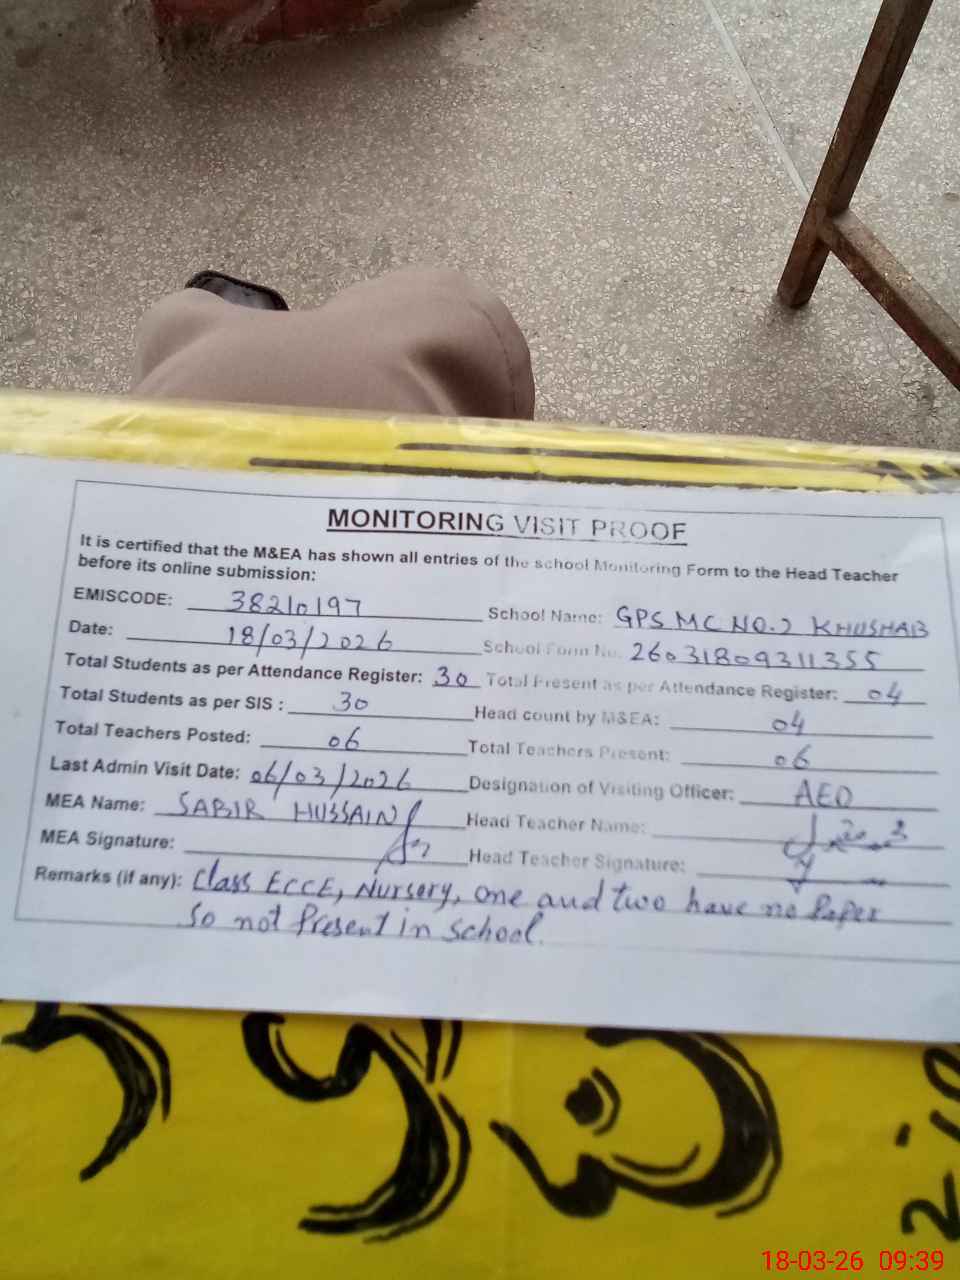 MONITORING VISIT PROOF
It is certified that the M&EA has shown all entries of the school Monitoring Form to the Head Teacher
before its online submission:
EMISCODE: 38210197 School Name: GPS MC NO.2 KHUSHAB
Date: 18/03/2026 School Form No. 26031809311355
Total Students as per Attendance Register: 30 Total Present as per Attendance Register: 04
Total Students as per SIS : 30 Head count by M&EA: 04
Total Teachers Posted: 06 Total Teachers Present: 06
Last Admin Visit Date: 06/03/2026 Designation of Visiting Officer: AEO
MEA Name: SABIR HUSSAIN Head Teacher Name:
MEA Signature: Head Teacher Signature:
Remarks (if any): Class ECCE, Nursery, one and two have no Paper
So not Present in School.
18-03-26 09:39